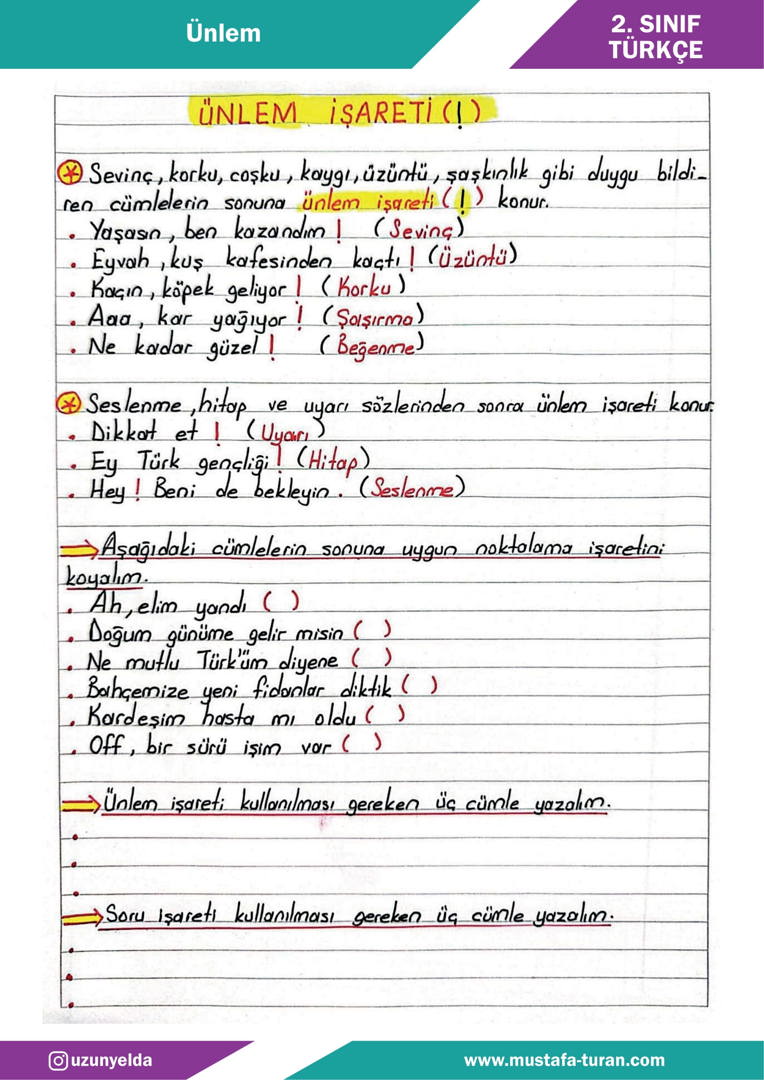 Ünlem
2. SINIF
TÜRKÇE
ÜNLEM İŞARETİ (!)
Sevinç, korku, coşku, kaygı, üzüntü, şaşkınlık gibi duygu bildi-
ren cümlelerin sonuna ünlem işareti (!) konur.
• Yaşasın, ben kazandım! (Sevinç)
• Eyvah, kuş kafesinden kaçtı! (Üzüntü)
• Kaçın, köpek geliyor! (Korku)
• Aaa, kar yağıyor! (Şaşırma)
• Ne kadar güzel! (Beğenme)
Seslenme, hitap ve uyarı sözlerinden sonra ünlem işareti konur.
• Dikkat et! (Uyarı)
• Ey Türk gençliği! (Hitap)
• Hey! Beni de bekleyin. (Seslenme)
Aşağıdaki cümlelerin sonuna uygun noktalama işaretini
koyalım.
• Ah, elim yandı ( )
• Doğum günüme gelir misin ( )
• Ne mutlu Türk'üm diyene ( )
• Bahçemize yeni fidanlar diktik ( )
• Kardeşim hasta mı oldu ( )
• Off, bir sürü işim var ( )
Ünlem işareti kullanılması gereken üç cümle yazalım.
Soru işareti kullanılması gereken üç cümle yazalım.
uzunyelda
www.mustafa-turan.com